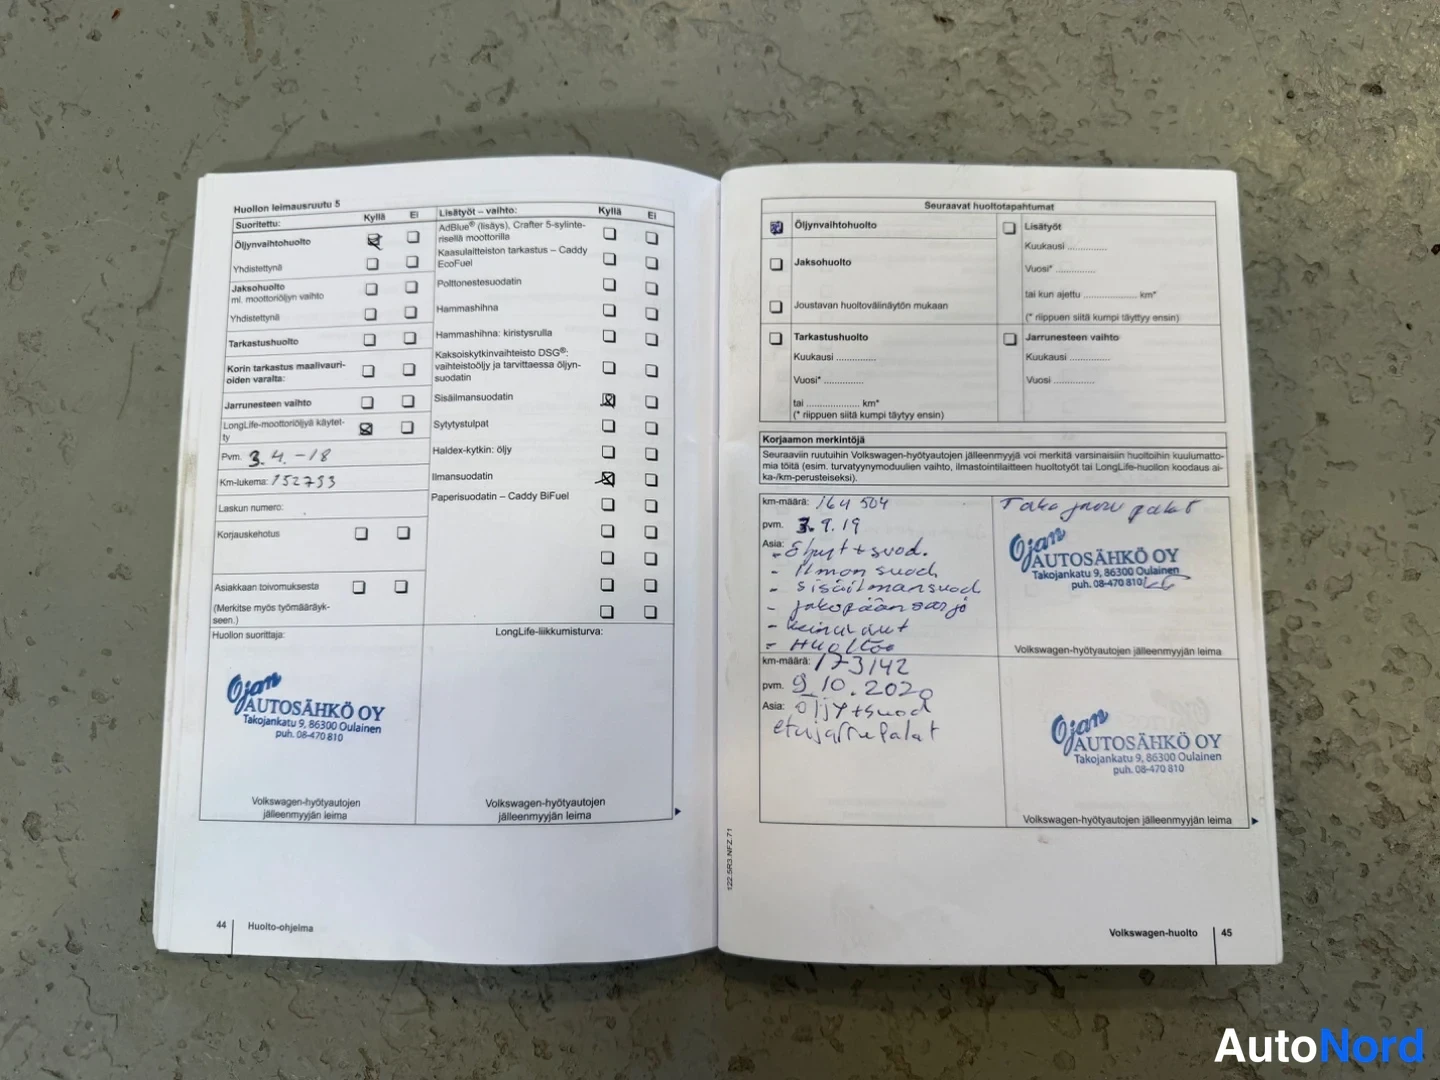 Huollon leimausruutu 5
Suoritettu: Kyllä Ei
Öljynvaihtohuolto
Yhdistettynä
Jaksohuolto
ml. moottoriöljyn vaihto
Yhdistettynä
Tarkastushuolto
Korin tarkastus maalivauri-
oiden varalta:
Jarrunesteen vaihto
LongLife-moottoriöljyä käytet-
ty
Pvm. 3.4.-18
Km-lukema: 152753
Laskun numero:
Korjauskehotus
Asiakkaan toivomuksesta
(Merkitse myös työmääräyk-
seen.)
Lisätyöt – vaihto: Kyllä Ei
AdBlue® (lisäys), Crafter 5-sylinte-
risellä moottorilla
Kaasulaitteiston tarkastus – Caddy
EcoFuel
Polttonestesuodatin
Hammashihna
Hammashihna: kiristysrulla
Kaksoiskytkinvaihteisto DSG®:
vaihteistoöljy ja tarvittaessa öljyn-
suodatin
Sisäilmansuodatin
Sytytystulpat
Haldex-kytkin: öljy
Ilmansuodatin
Paperisuodatin – Caddy BiFuel
Huollon suorittaja:
Ojan
AUTOSÄHKÖ OY
Takojankatu 9, 86300 Oulainen
puh. 08-470 810
Volkswagen-hyötyautojen
jälleenmyyjän leima
LongLife-liikkumisturva:
Volkswagen-hyötyautojen
jälleenmyyjän leima
44 Huolto-ohjelma
Seuraavat huoltotapahtumat
Öljynvaihtohuolto
Jaksohuolto
Joustavan huoltovälinäytön mukaan
Tarkastushuolto
Kuukausi .............
Vuosi* .............
tai .................. km*
(* riippuen siitä kumpi täytyy ensin)
Lisätyöt
Kuukausi .............
Vuosi* .............
tai kun ajettu .................. km*
(* riippuen siitä kumpi täyttyy ensin)
Jarrunesteen vaihto
Kuukausi .............
Vuosi .............
Korjaamon merkintöjä
Seuraaviin ruutuihin Volkswagen-hyötyautojen jälleenmyyjä voi merkitä varsinaisiin huoltoihin kuulumatto-
mia töitä (esim. turvatyynymoduulien vaihto, ilmastointilaitteen huoltotyöt tai LongLife-huollon koodaus ai-
ka-/km-perusteiseksi).
km-määrä: 164 504
pvm. 3.9.19
Asia: - öljyt + suod.
- ilman suod
- sisäilmansuod
- jakopään sarja
- Huoltoo
Taka jarru palat
Ojan
AUTOSÄHKÖ OY
Takojankatu 9, 86300 Oulainen
puh. 08-470 810
Volkswagen-hyötyautojen jälleenmyyjän leima
km-määrä: 173142
pvm. 9.10.2020
Asia: öljy + suod
etujarrupalat
Ojan
AUTOSÄHKÖ OY
Takojankatu 9, 86300 Oulainen
puh. 08-470 810
Volkswagen-hyötyautojen jälleenmyyjän leima
122.5R3.NFZ.71
Volkswagen-huolto 45
AutoNord